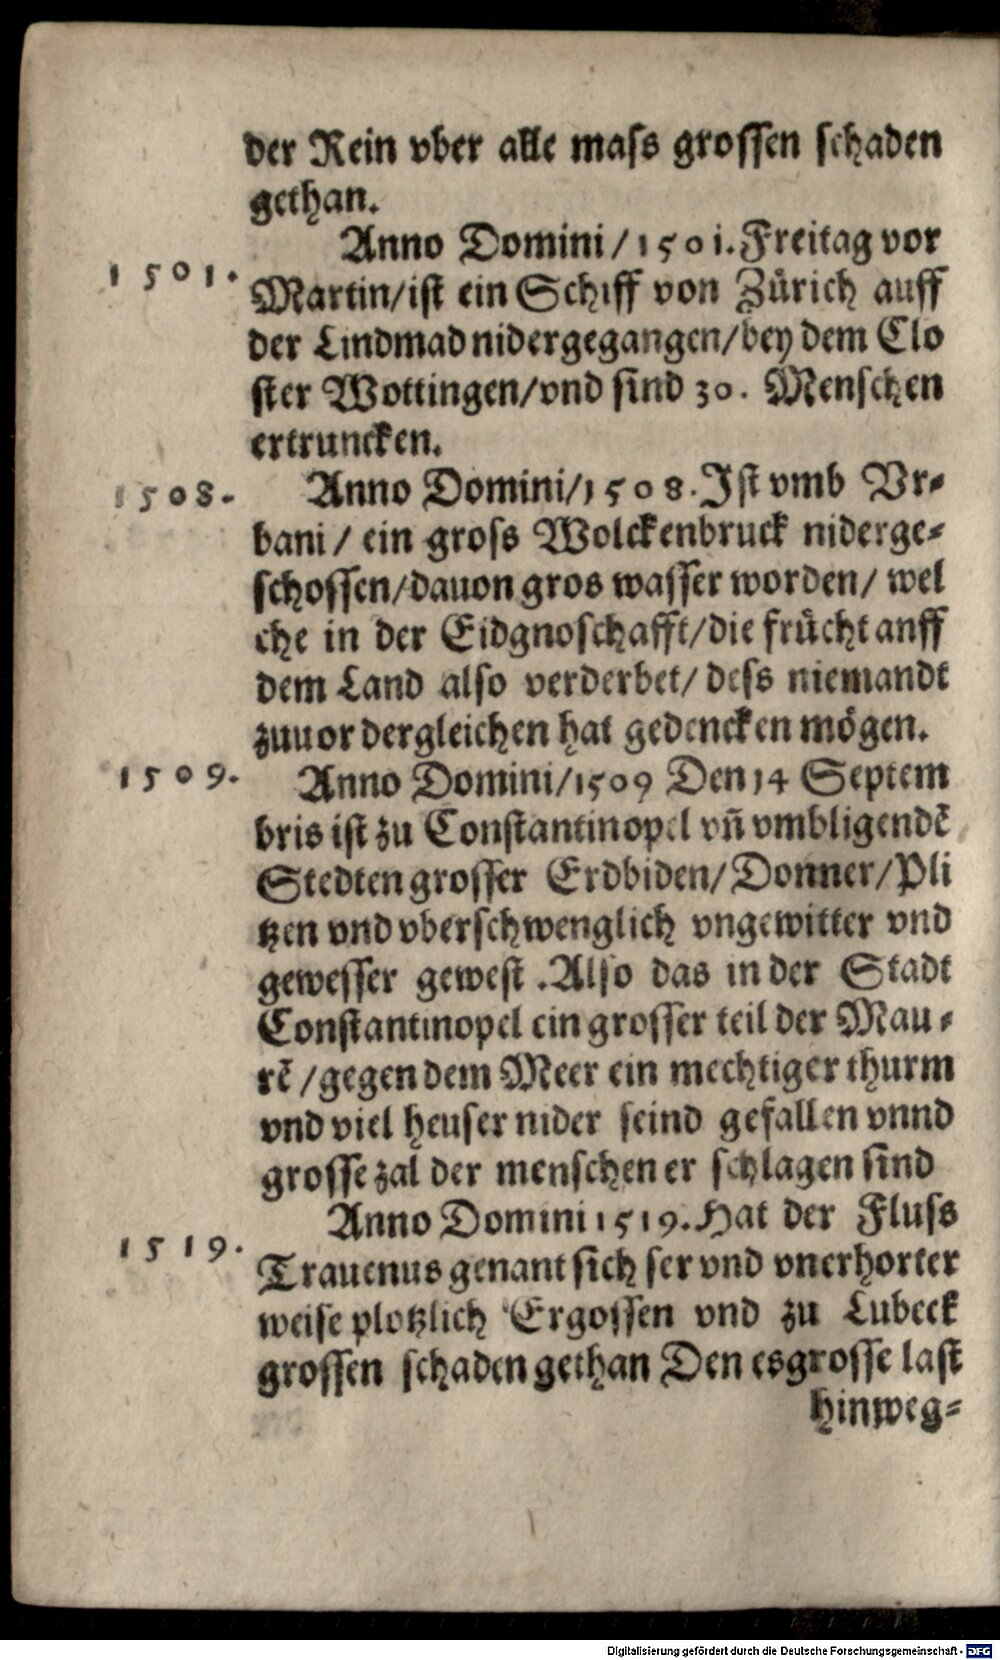 der Rein vber alle mass grossen schaden
gethan.
Anno Domini / 1501. Freitag vor
1501.
Martin/ist ein Schiff von Zürich auff
der Lindmad nidergegangen/bey dem Clo
ster Wottingen/vnd sind 30. Menschen
ertruncken.
1508.
Anno Domini/1508. Ist vmb Vr-
bani / ein gross Wolckenbruck niderge-
schossen/dauon gros wasser worden/ wel
che in der Eidgnoschafft/die frücht anff
dem Land also verderbet/ dess niemandt
zuuor dergleichen hat gedencken mögen.
1509.
Anno Domini/1509 Den 14 Septem
bris ist zu Constantinopel vn̄ vmbligendē
Stedten grosser Erdbiden/Donner/Pli
tzen vnd vberschwenglich vngewitter vnd
gewesser gewest .Also das in der Stadt
Constantinopel ein grosser teil der Mau-
rē /gegen dem Meer ein mechtiger thurm
vnd viel heuser nider seind gefallen vnnd
grosse zal der menschen er schlagen sind
Anno Domini 1519. Hat der Fluss
1519.
Trauenus genant sich ser vnd vnerhorter
weise plotzlich Ergossen vnd zu Lubeck
grossen schaden gethan Den es grosse last
hinweg-
Digitalisierung gefördert durch die Deutsche Forschungsgemeinschaft - DFG